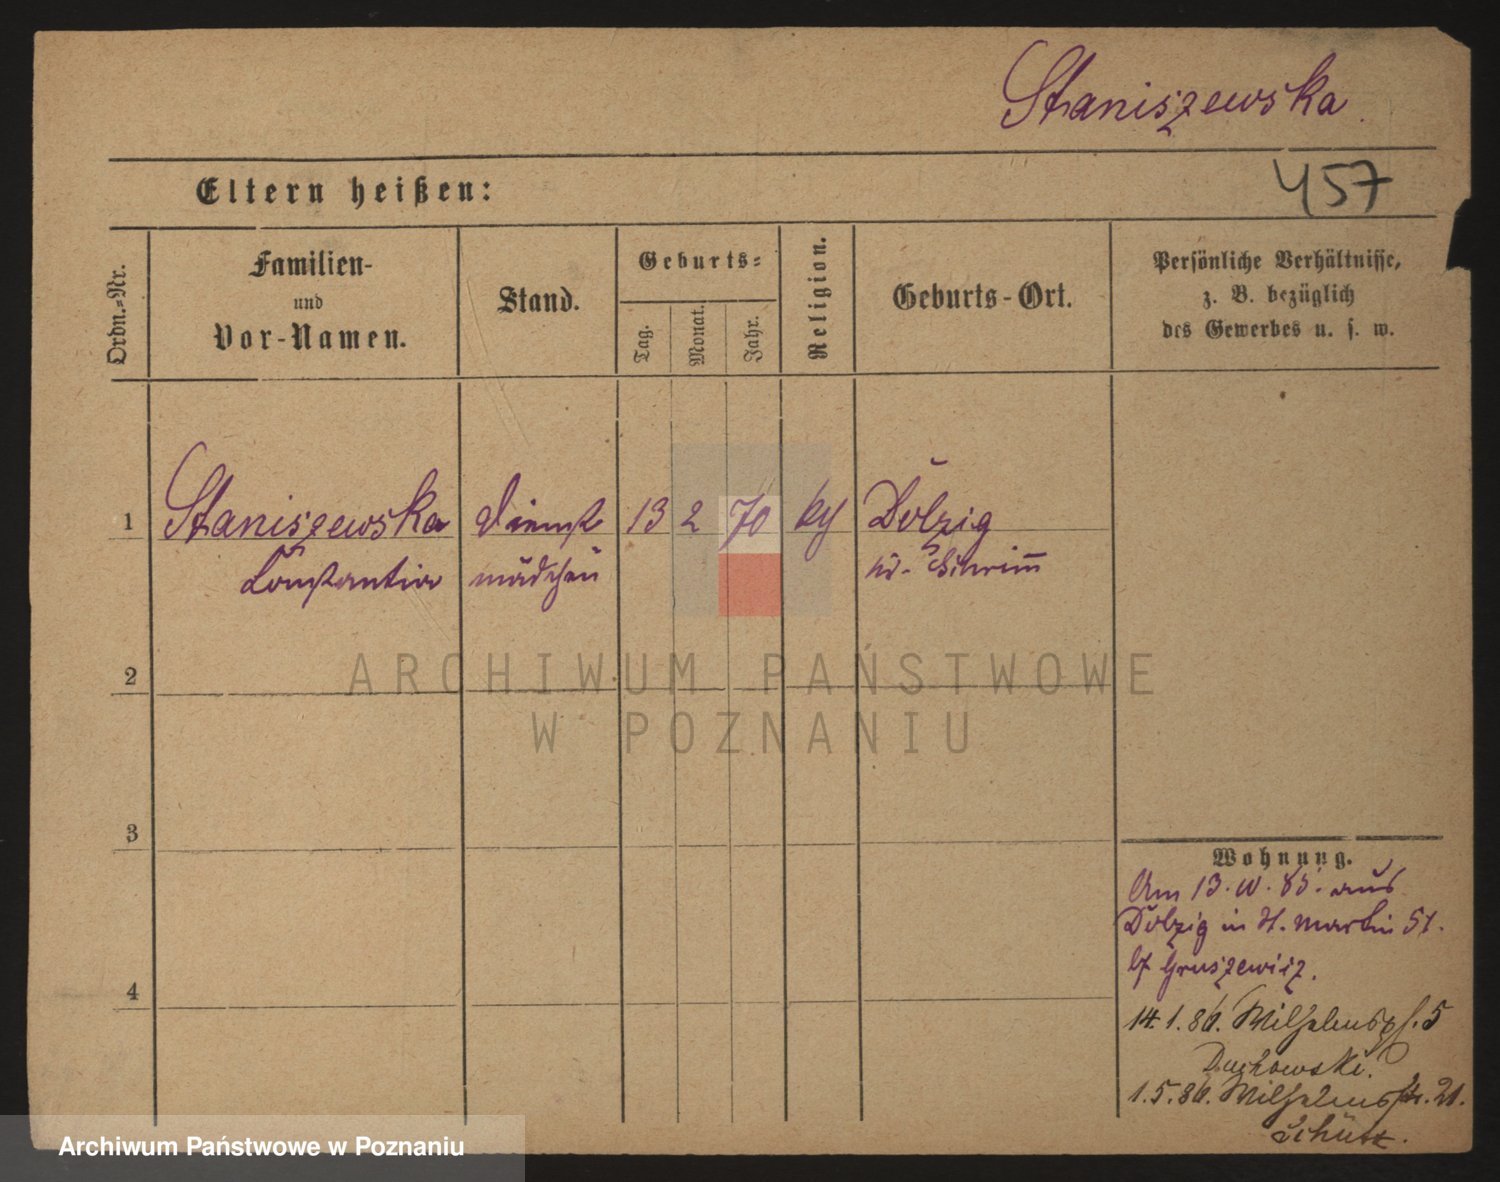 Staniszewska
457
Eltern heißen:
Ordn.-Nr.
Familien-
und
Vor-Namen.
Stand.
Geburts-
Tag.
Monat.
Jahr.
Religion.
Geburts-Ort.
Persönliche Verhältnisse,
z. B. bezüglich
des Gewerbes u. s. w.
1 Staniszewska Dienst 13 2 70 Dolzig
Constantia mädchen Kr. Schrimm
2
3
4
Wohnung.
Am 13. 85. aus
Dolzig in St. Martin 51.
Gruszewicz.
14.1.86. Wilhelmspl. 5
Duchowski.
1.5.86. Wilhelmstr. 21.
Schütz.
ARCHIWUM PAŃSTWOWE
W POZNANIU
Archiwum Państwowe w Poznaniu